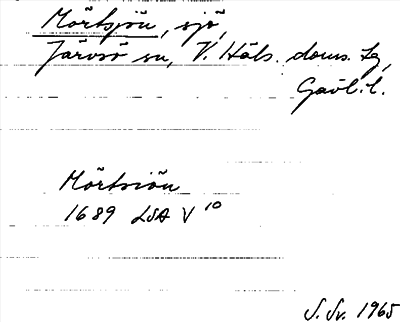 Mörtsjön, sjö,
Järvsö sn, V. Häls. doms. tg,
Gävl. l.
Mörtsiön
1689 LSA V 10
S. Sv. 1965